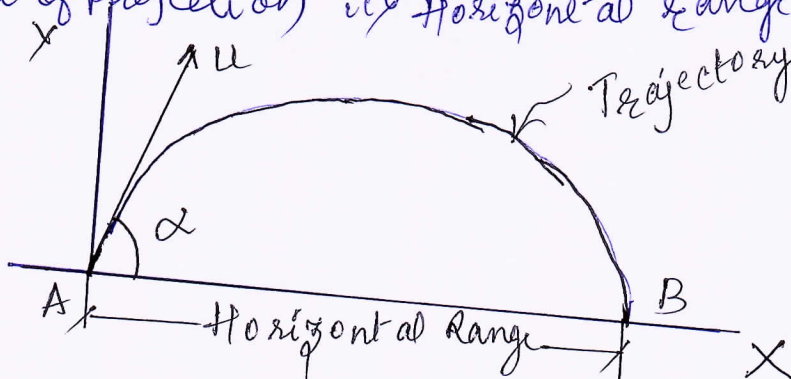 of Projection) iv) Horizontal Range
Y
u
Trajectory
α
A
B
Horizontal Range
X